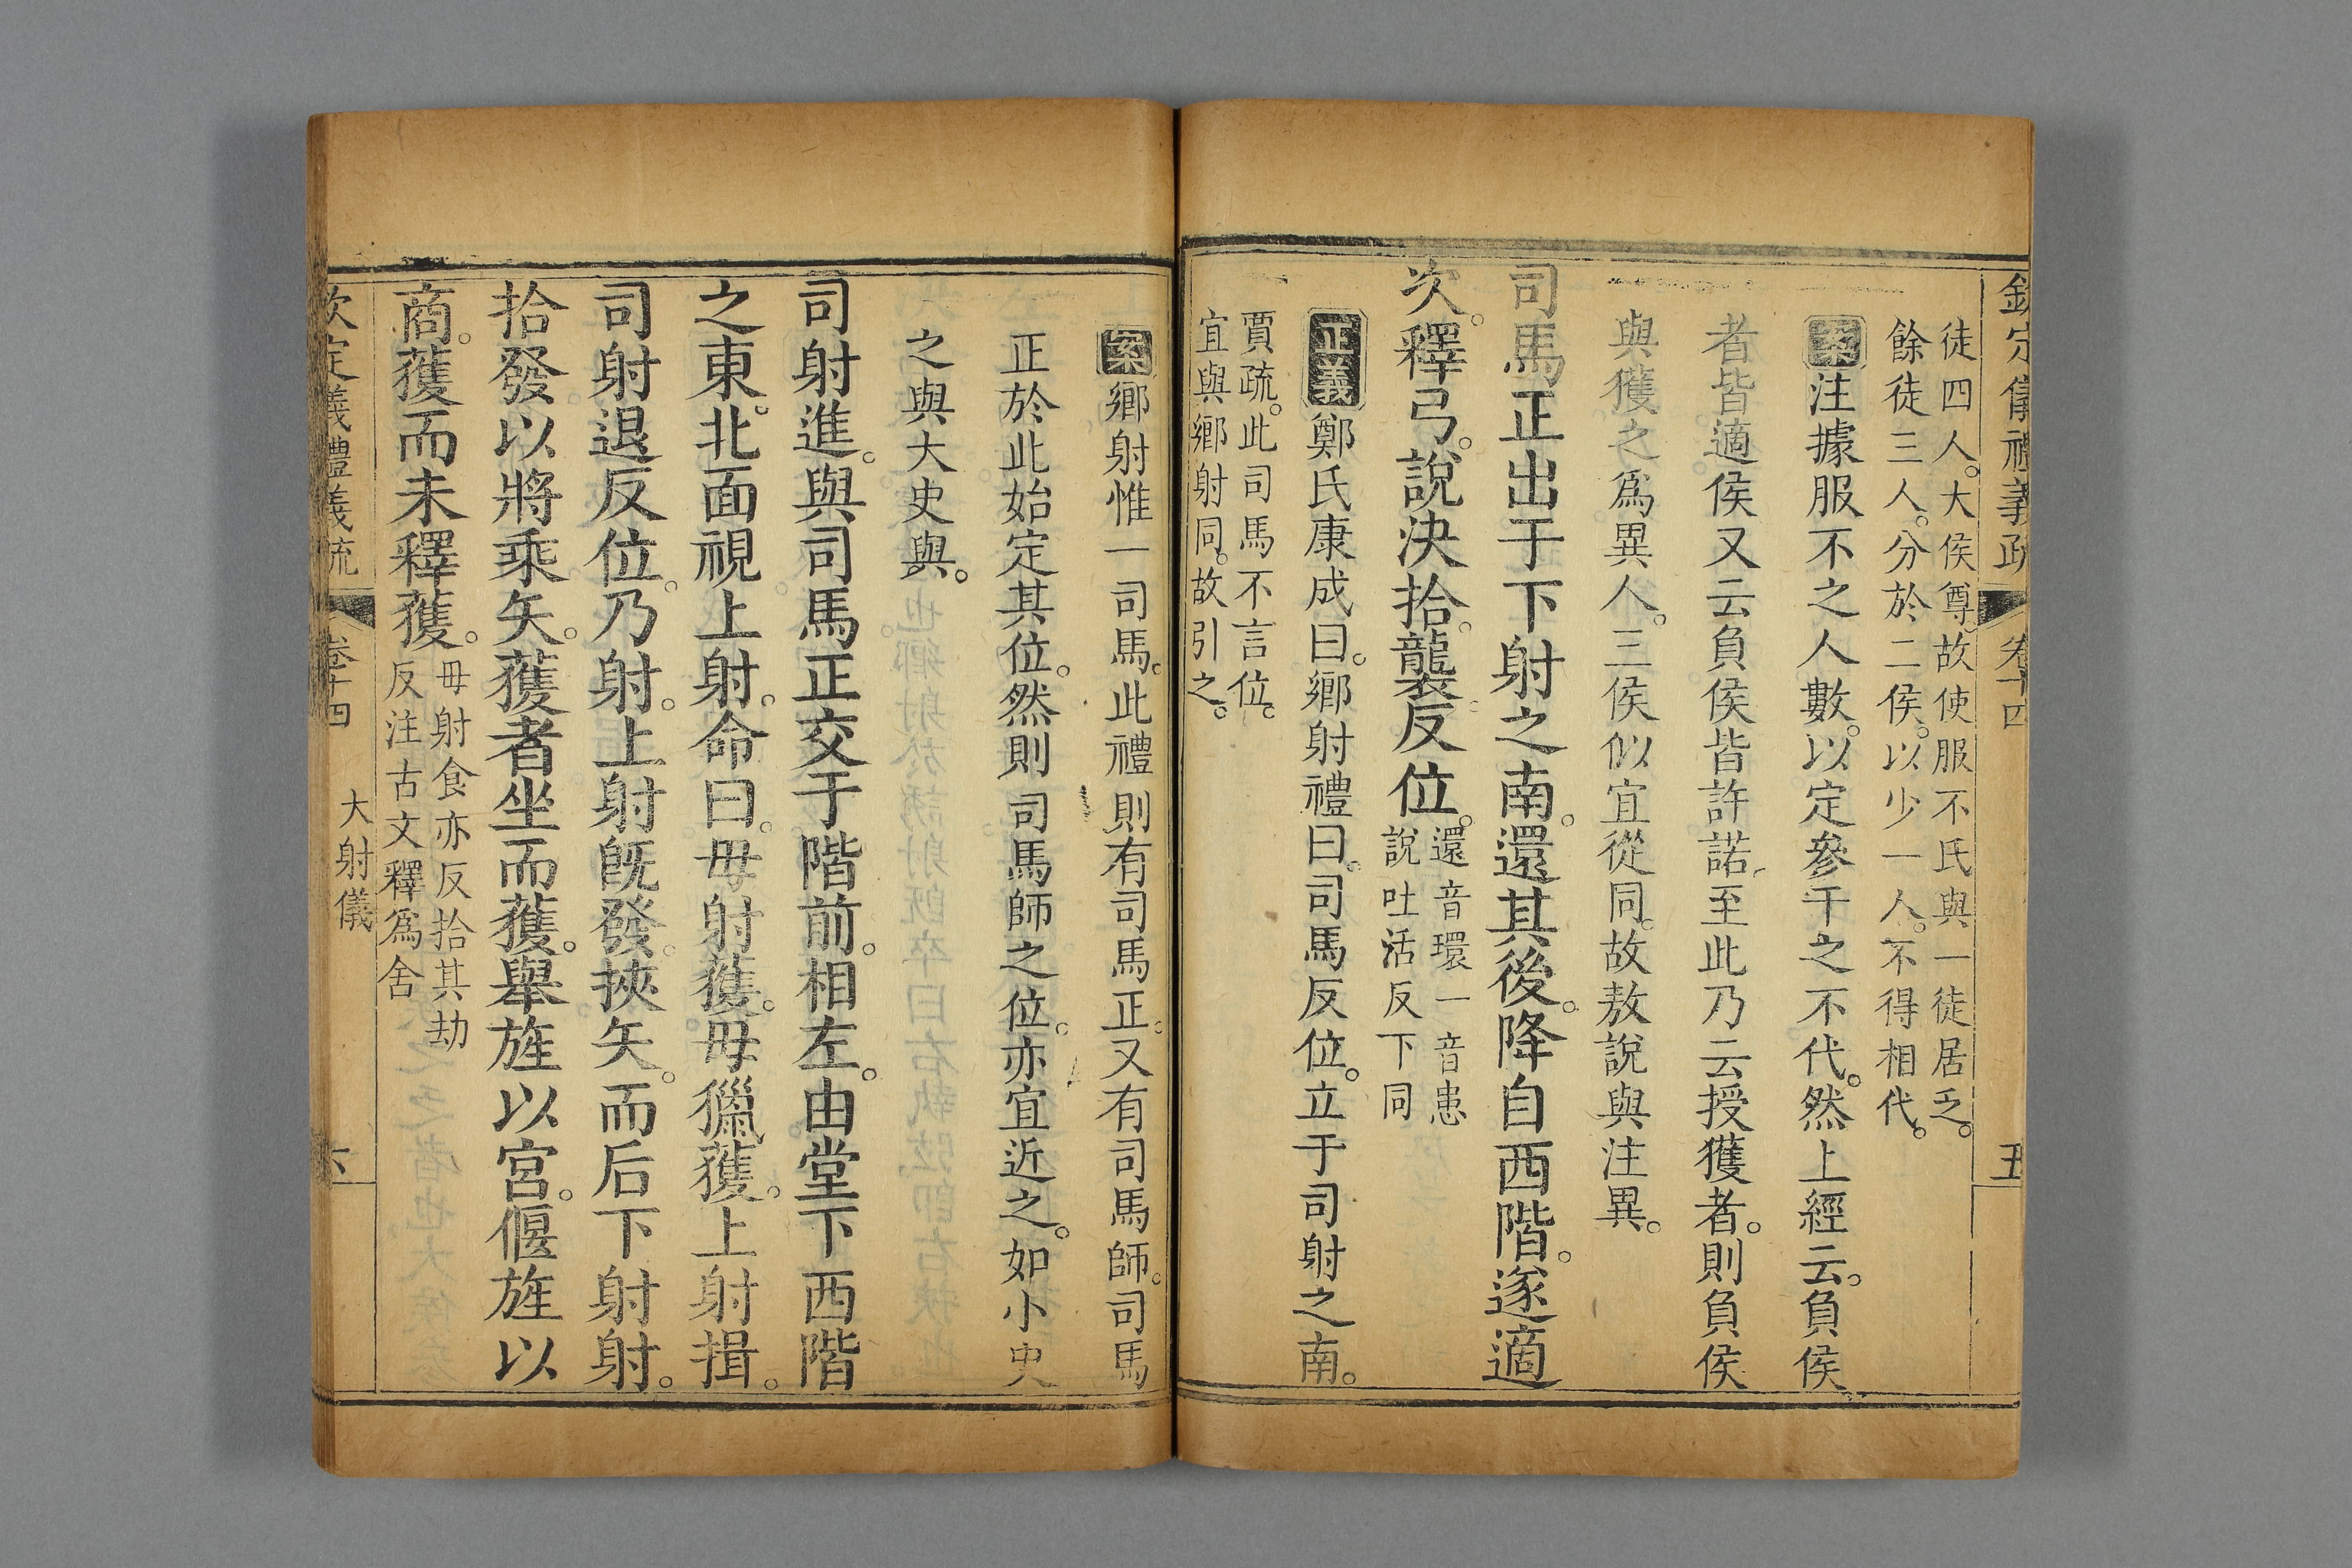 欽定儀禮義疏 卷十四 五
徒四人。大侯尊。故使服不氏與一徒居乏。
餘徒三人。分於二侯。以少一人。不得相代。
案注據服不之人數。以定參干之不代。然上經云。負侯
者皆適侯又云負侯皆許諾。至此乃云授獲者。則負侯
與獲之爲異人。三侯似宜從同。故敖說與注異。
司馬正出于下射之南。還其後。降自西階。遂適
次。釋弓。說決拾。襲反位。還音環一音患
說吐活反下同
正義鄭氏康成曰。鄉射禮曰。司馬反位。立于司射之南。
賈疏。此司馬不言位。
宜與鄉射同。故引之。
案鄉射惟一司馬。此禮則有司馬正。又有司馬師。司馬
正於此始定其位。然則司馬師之位。亦宜近之。如小史
之與大史與。
司射進。與司馬正交于階前。相左。由堂下西階
之東。北面視上射。命曰。毋射獲。毋獵獲。上射揖。
司射退反位。乃射。上射旣發。挾矢。而后下射射。
拾發以將乘矢。獲者坐而獲。舉旌以宮。偃旌以
商。獲而未釋獲。毋射食亦反拾其劫
反注古文釋爲舍
欽定儀禮義疏 卷十四 大射儀 六